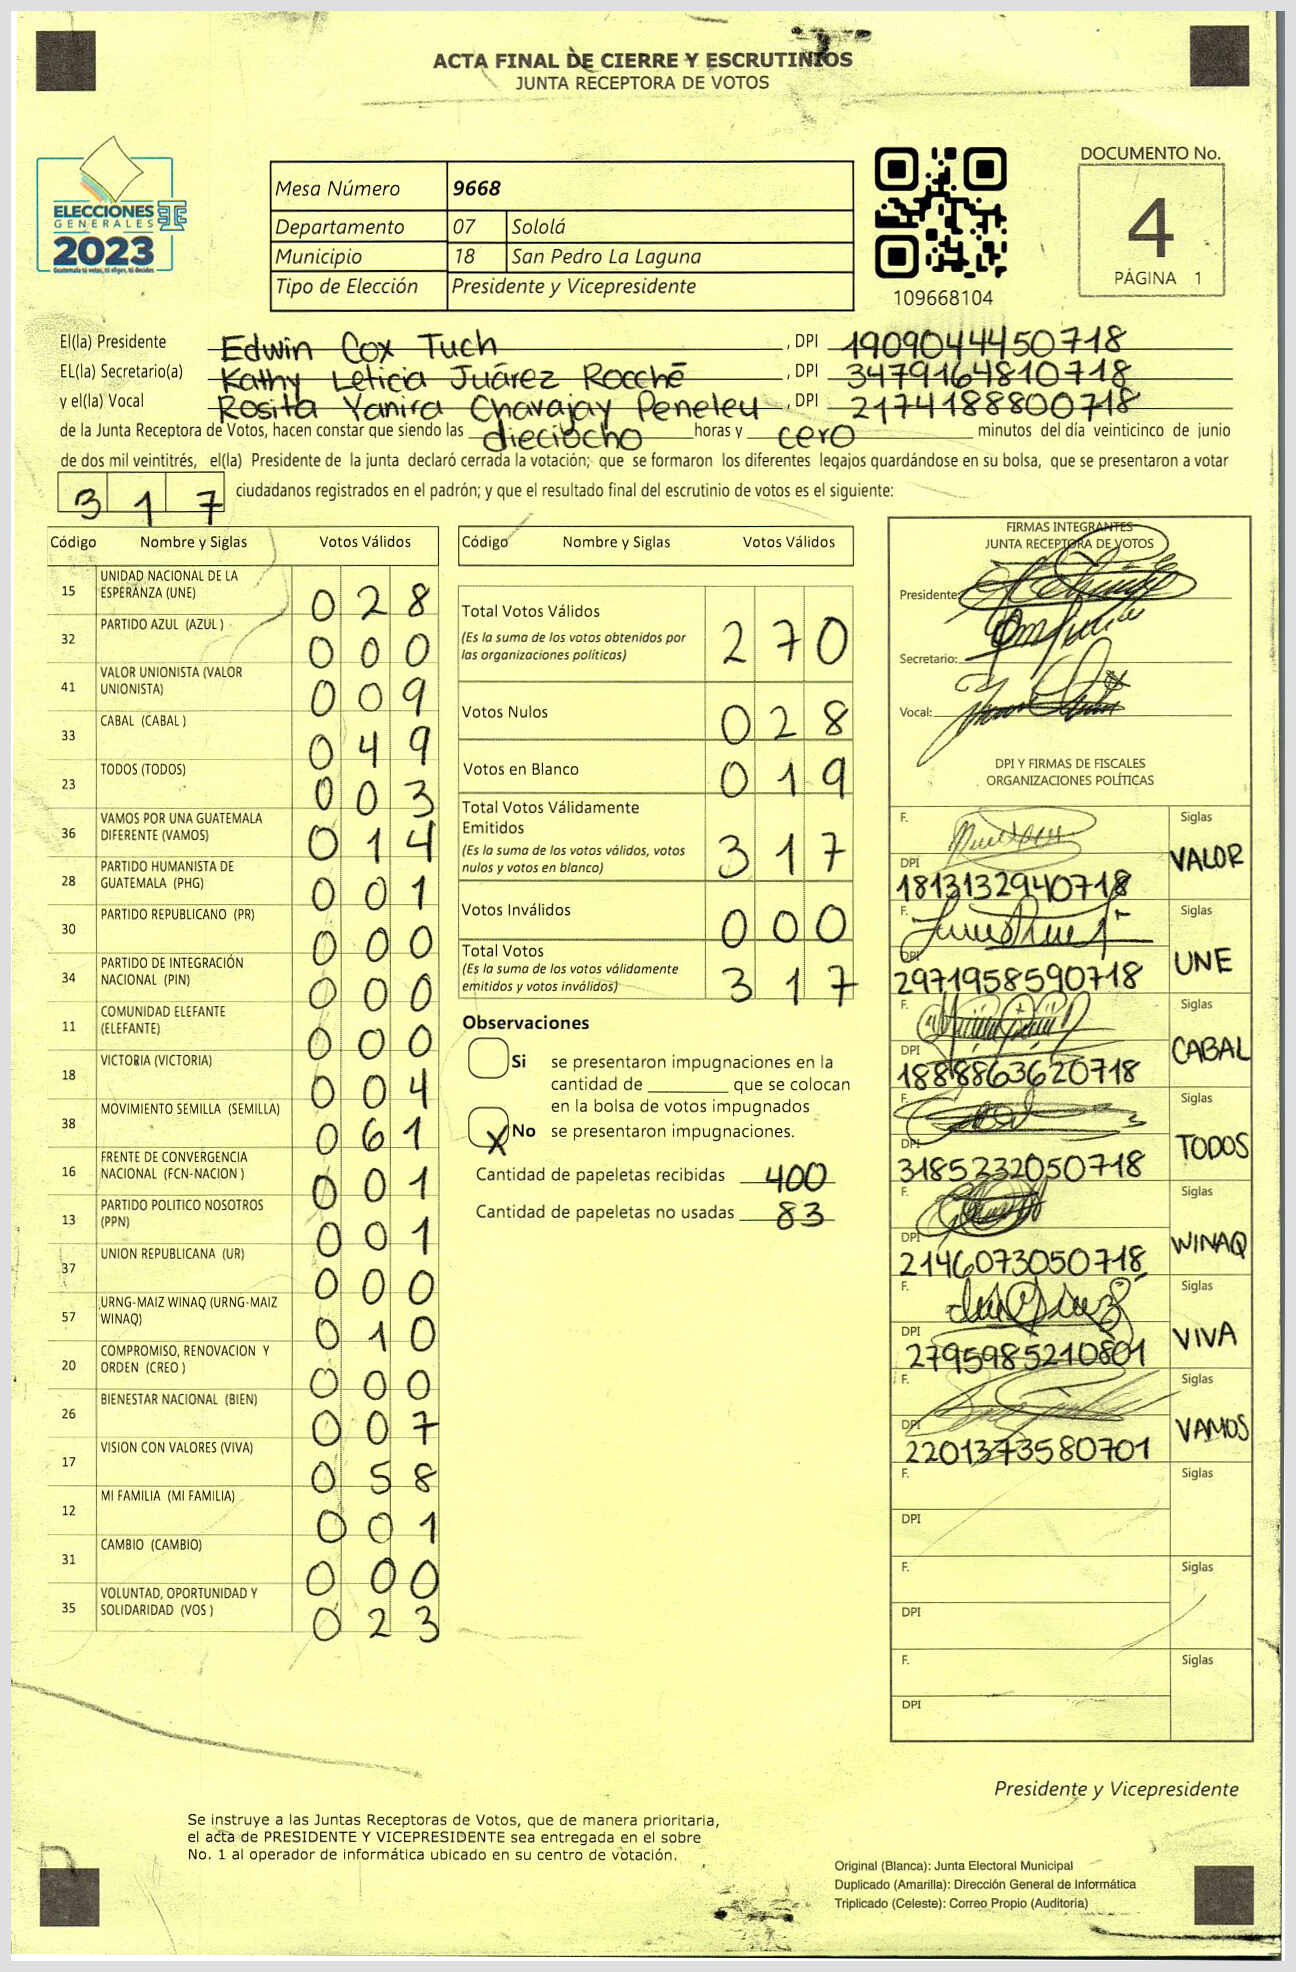 ACTA FINAL DE CIERRE Y ESCRUTINIOS
JUNTA RECEPTORA DE VOTOS
ELECCIONES
GENERALES
2023
Guatemala tú votas, tú eliges, tú decides
Mesa Número 9668
Departamento 07 Sololá
Municipio 18 San Pedro La Laguna
Tipo de Elección Presidente y Vicepresidente
109668104
DOCUMENTO No.
4
PÁGINA 1
El(la) Presidente Edwin Cox Tuch , DPI 1909044450718
EL(la) Secretario(a) Kathy Leticia Juárez Rocché , DPI 3479164810718
y el(la) Vocal Rosita Yanira Chavajay Peneleu , DPI 2174188800718
de la Junta Receptora de Votos, hacen constar que siendo las dieciocho horas y cero minutos del día veinticinco de junio
de dos mil veintitrés, el(la) Presidente de la junta declaró cerrada la votación; que se formaron los diferentes legajos guardándose en su bolsa, que se presentaron a votar
317 ciudadanos registrados en el padrón; y que el resultado final del escrutinio de votos es el siguiente:
Código Nombre y Siglas Votos Válidos
15 UNIDAD NACIONAL DE LA
ESPERANZA (UNE) 028
32 PARTIDO AZUL (AZUL ) 000
41 VALOR UNIONISTA (VALOR
UNIONISTA) 009
33 CABAL (CABAL ) 049
23 TODOS (TODOS) 003
36 VAMOS POR UNA GUATEMALA
DIFERENTE (VAMOS) 014
28 PARTIDO HUMANISTA DE
GUATEMALA (PHG) 001
30 PARTIDO REPUBLICANO (PR) 000
34 PARTIDO DE INTEGRACIÓN
NACIONAL (PIN) 000
11 COMUNIDAD ELEFANTE
(ELEFANTE) 000
18 VICTORIA (VICTORIA) 004
38 MOVIMIENTO SEMILLA (SEMILLA) 061
16 FRENTE DE CONVERGENCIA
NACIONAL (FCN-NACION ) 001
13 PARTIDO POLITICO NOSOTROS
(PPN) 001
37 UNION REPUBLICANA (UR) 000
57 URNG-MAIZ WINAQ (URNG-MAIZ
WINAQ) 010
20 COMPROMISO, RENOVACION Y
ORDEN (CREO ) 000
26 BIENESTAR NACIONAL (BIEN) 007
17 VISION CON VALORES (VIVA) 058
12 MI FAMILIA (MI FAMILIA) 001
31 CAMBIO (CAMBIO) 000
35 VOLUNTAD, OPORTUNIDAD Y
SOLIDARIDAD (VOS ) 023
Código Nombre y Siglas Votos Válidos
Total Votos Válidos 270
(Es la suma de los votos obtenidos por
las organizaciones políticas)
Votos Nulos 028
Votos en Blanco 019
Total Votos Válidamente
Emitidos 317
(Es la suma de los votos válidos, votos
nulos y votos en blanco)
Votos Inválidos 000
Total Votos 317
(Es la suma de los votos válidamente
emitidos y votos inválidos)
Observaciones
Si se presentaron impugnaciones en la
cantidad de ________ que se colocan
en la bolsa de votos impugnados
X No se presentaron impugnaciones.
Cantidad de papeletas recibidas 400
Cantidad de papeletas no usadas 83
FIRMAS INTEGRANTES
JUNTA RECEPTORA DE VOTOS
Presidente:
Secretario:
Vocal:
DPI Y FIRMAS DE FISCALES
ORGANIZACIONES POLÍTICAS
F. Siglas
DPI VALOR
1813132940718
F. Siglas
DPI UNE
2971958590718
F. Siglas
DPI CABAL
1888863620718
F. Siglas
DPI TODOS
3185232050718
F. Siglas
DPI WINAQ
2146073050718
F. Siglas
DPI VIVA
2795985210801
F. Siglas
DPI VAMOS
2201373580701
F. Siglas
DPI
F. Siglas
DPI
F. Siglas
DPI
Presidente y Vicepresidente
Se instruye a las Juntas Receptoras de Votos, que de manera prioritaria,
el acta de PRESIDENTE Y VICEPRESIDENTE sea entregada en el sobre
No. 1 al operador de informática ubicado en su centro de votación.
Original (Blanca): Junta Electoral Municipal
Duplicado (Amarilla): Dirección General de Informática
Triplicado (Celeste): Correo Propio (Auditoría)